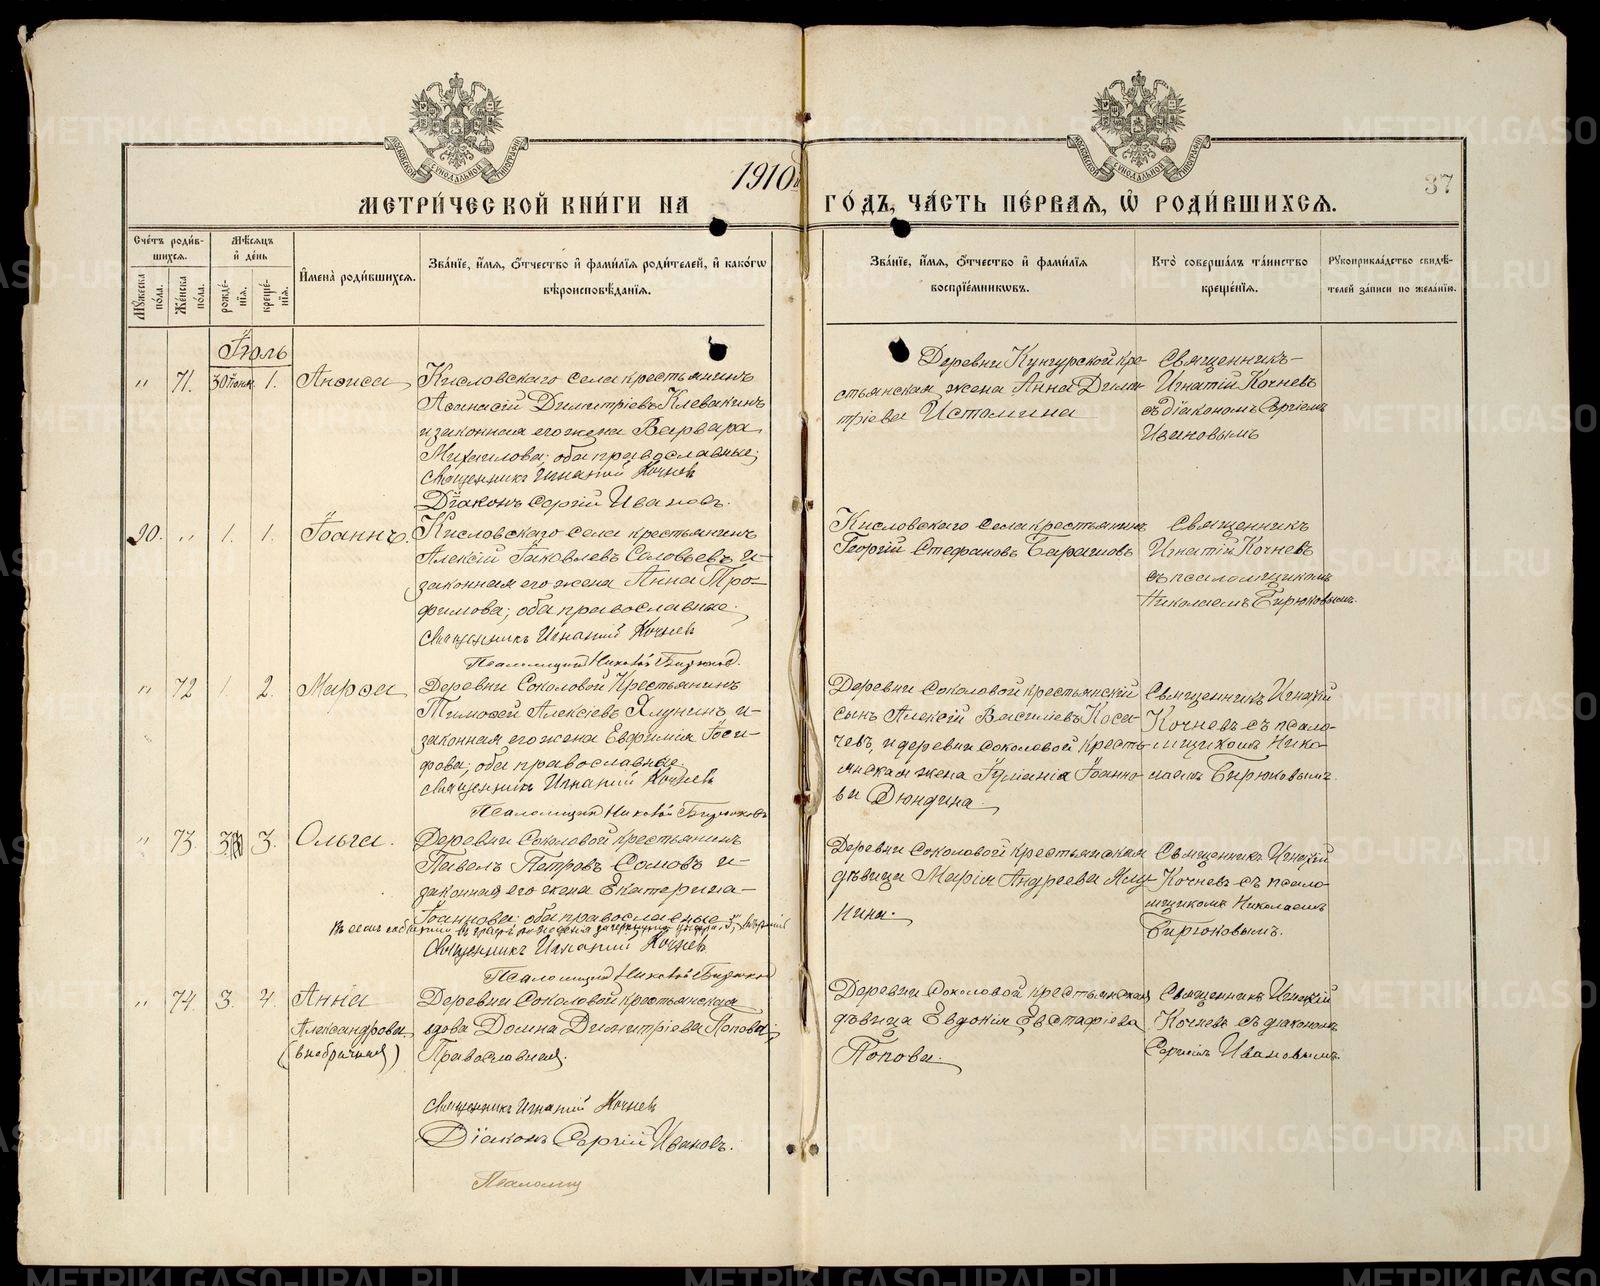 1910 й
37
МЕТРИ́ЧЕСКОЙ КНИ́ГИ НА
ГО́ДЪ, ЧА́СТЬ ПЕ́РВАЯ, Ѽ РОДИ́ВШИХСЯ.
Сче́тъ роди́вшихся.
Мѣ́сяцъ и҆ де́нь
Му́жеска по́ла.
Же́нска по́ла.
рожде́нїя.
креще́нїя.
И҆мена̀ роди́вшихся.
Зва́нїе, и҆́мя, о҆́тчество и҆ фами́лїя роди́телей, и҆ како́гѡ вѣроисповѣ́данїя.
Зва́нїе, и҆́мя, о҆́тчество и҆ фами́лїя воспрїе́мникѡвъ.
Кто̀ соверша́лъ та́инство креще́нїя.
Рꙋкоприкла́дство свидѣ́телей за́писи по жела́нїю.
Іюль
" 71. 30 Іюня 1. Анѳиса
Кисловскаго села крестьянинъ
Аѳанасій Димитріевъ Клевакинъ
и законная его жена Варвара
Михаилова; оба православные;
Священникъ Игнатий Кочнев
Діаконъ Сергій Ивановъ.
Деревни Кунгурской кре-
стьянская жена Анна Дими-
тріева Истомина
Священникъ
Игнатій Кочневъ
съ діакономъ Сергіемъ
Ивановымъ
90. " 1. 1. Іоаннъ.
Кисловскаго села крестьянинъ
Алексій Іаковлевъ Соловьевъ и
законная его жена Анна Тро-
фимова; оба православные.
Священникъ Игнатий Кочнев
Псаломщикъ Николай Бирюков.
Кисловскаго села крестьянинъ
Георгій Стефановъ Барашовъ
Священникъ
Игнатій Кочневъ
съ псаломщикомъ
Николаемъ Бирюковымъ.
" 72 1. 2. Марѳа
Деревни Соколовой Крестьянинъ
Тимоѳей Алексіевъ Ялунинъ и
законная его жена Евфимія Іоси-
фова; оба православные
Священникъ Игнатий Кочнев
Псаломщикъ Николай Бирюковъ
Деревни Соколовой крестьянскій
сынъ Алексій Василіевъ Коси-
чевъ, и деревни Соколовой кресть-
янская жена Іуліанія Іоанно-
ва Дюндина.
Священникъ Игнатій
Кочневъ съ псало-
мщикомъ Нико-
лаемъ Бирюковымъ.
" 73. 3. 3. Ольга.
Деревни Соколовой крестьянинъ
Павелъ Петровъ Сомовъ и
законная его жена Екатерина
Іоаннова; оба православные
Священникъ Игнатий Кочнев
Псаломщикъ Николай Бирюков
Деревни Соколовой крестьянская
дѣвица Марія Андреева Ялу-
нина.
Священникъ Игнатій
Кочневъ съ псало-
мщикомъ Николаемъ
Бирюковымъ.
" 74. 3. 4. Анна
Александрова
(внебрачная)
Деревни Соколовой крестьянская
вдова Домна Димитріева Попова;
Православная.
Священникъ Игнатий Кочнев
Діаконъ Сергій Ивановъ.
Псаломщ
Деревни Соколовой крестьянская
дѣвица Евдокія Евстафіева
Попова.
Священникъ Игнатій
Кочневъ съ діакономъ
Сергіемъ Ивановымъ.
METRIKI.GASO-URAL.RU